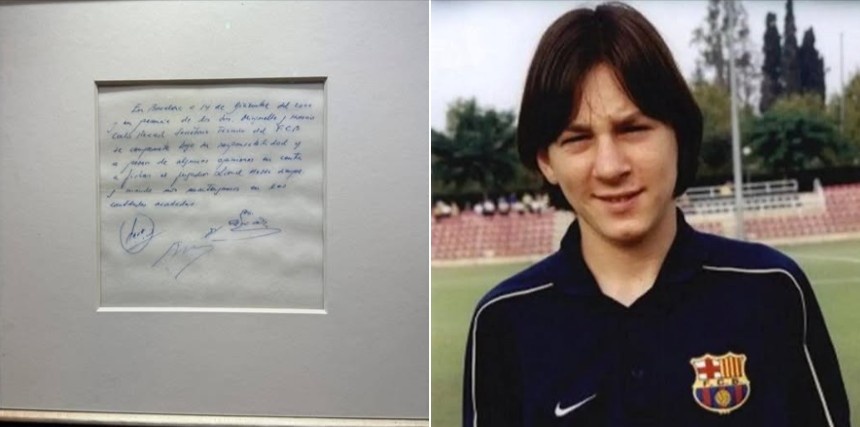 En Barcelona a 14 de diciembre del 2000
y en presencia de los Srs Minguella y Horacio
Carles Rexach Secretario Técnico del F.C.B
se compromete bajo su responsabilidad y
a pesar de algunas opiniones en contra
a fichar al jugador Lionel Messi siempre
y cuando nos mantengamos en las
cantidades acordadas
F.C.B.